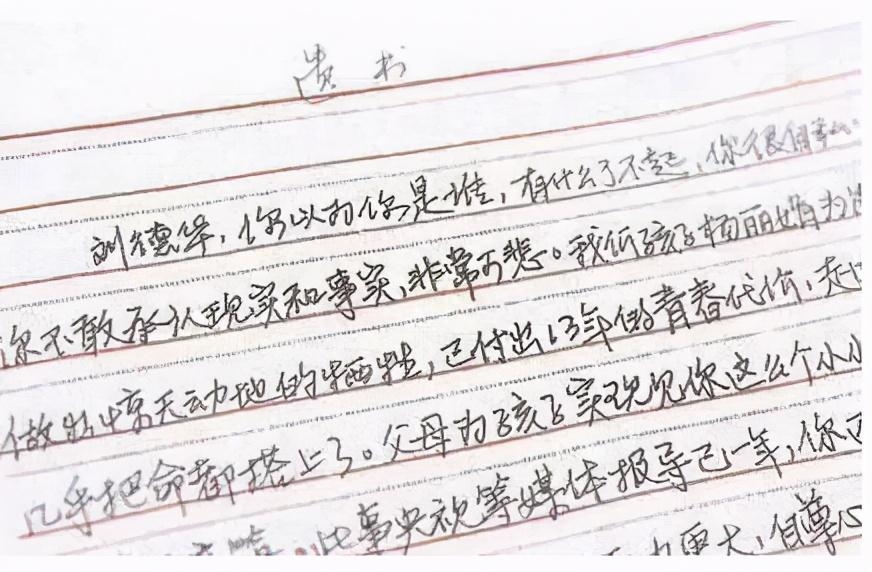 遗书
刘德华，你以为你是谁，有什么了不起，你很自
你不敢承认现实和事实，非常可悲。我低孩子杨丽娟为
做出惊天动地的牺牲，已付出13年的青春代价，走
几乎把命都搭上了。父母为孩子实现见你这么个小小
此事央视等媒体报导已一年，你
更大，自尊心